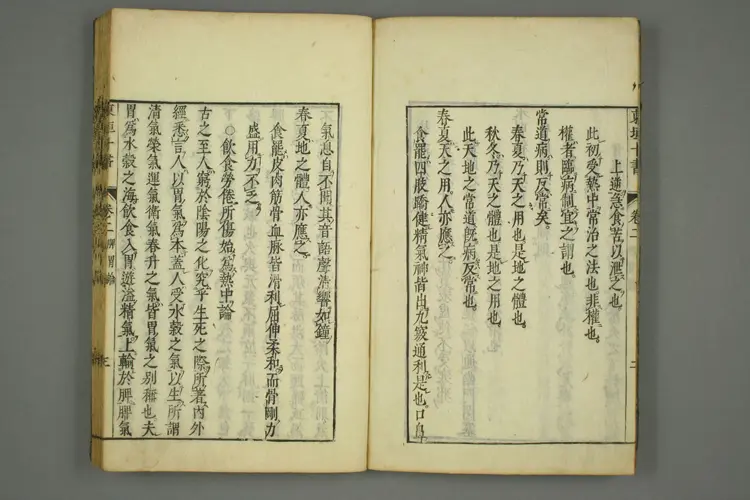 東垣十書
卷二
二
上逆急食苦以泄之也
此初受熱中常治之法也非權也
權者臨病制宜之謂也
常道病則反常矣
春夏乃天之用也是地之體也
秋冬乃天之體也是地之用也
此天地之常道既病反常也
春夏天之用人亦應之
食罷四肢矯健精氣神皆出九竅通利是也口鼻
不氣息自不聞其音語聲清響如鐘
春夏地之體人亦應之
食罷皮肉筋骨血脉皆滑利屈伸柔和而骨剛力
盛用力不乏
○飲食勞倦所傷始爲熱中論
古之至人窮於陰陽之化究乎生死之際所著內外
經悉言人以胃氣爲本蓋人受水穀之氣以生所謂
清氣榮氣運氣衛氣春升之氣皆胃氣之別稱也夫
胃爲水穀之海飲食入胃遊溢精氣上輸於脾脾氣
東垣十書
卷二脾胃論
三